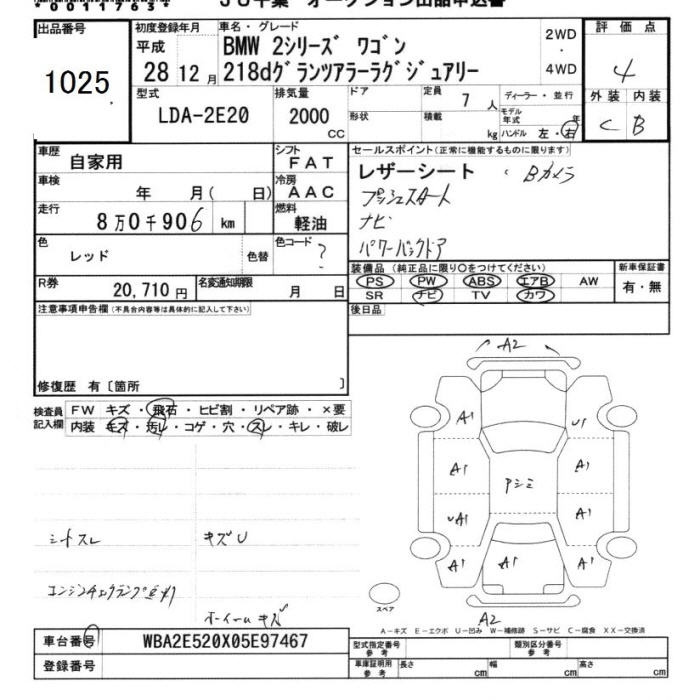 *00117634*
JU千葉 オークション出品申込書
出品番号
1025
初度登録年月
平成
28 12 月
車名・グレード
BMW 2シリーズ ワゴン
218dグランツアラーラグジュアリー
2WD
・
4WD
評 価 点
4
外装 内装
C B
型式
LDA-2E20
排気量
2000
CC
ドア
形状
定員 7 人
積載 kg
ディーラー・並行
モデル年式 年
ハンドル 左・右
車歴 自家用
シフト FAT
車検 年 月( 日)
冷房 AAC
走行 8万0千906 km
燃料 軽油
色 レッド 色替
色コード ?
R券 20,710円
名変通知期限 月 日
セールスポイント(正常に機能するものに限ります)
レザーシート Bカメラ
プッシュスタート
ナビ
パワーバックドア
装備品(純正品に限り○をつけてください)
PS PW ABS エアB AW
SR ナビ TV カワ
新車保証書
有・無
後日品
注意事項申告欄(不具合内容等は具体的に記入して下さい)
修復歴 有〔箇所 〕
検査員記入欄
FW キズ・飛石・ヒビ割・リペア跡・×要
内装 キズ・汚レ・コゲ・穴・スレ・キレ・破レ
シートスレ キズU
エンジンチェックランプ点灯
ホイールキズ
A2
A1 U1
A1 A1
Pシミ
UA1 A1
A1 A1 A1
A2
スペア
A-キズ E-エクボ U-凹み W-補修跡 S-サビ C-腐食 XX-交換済
車台番号 WBA2E520X05E97467
登録番号
型式指定番号 参考
類別区分番号 参考
車庫証明用 参考 長さ cm 幅 cm 高さ cm